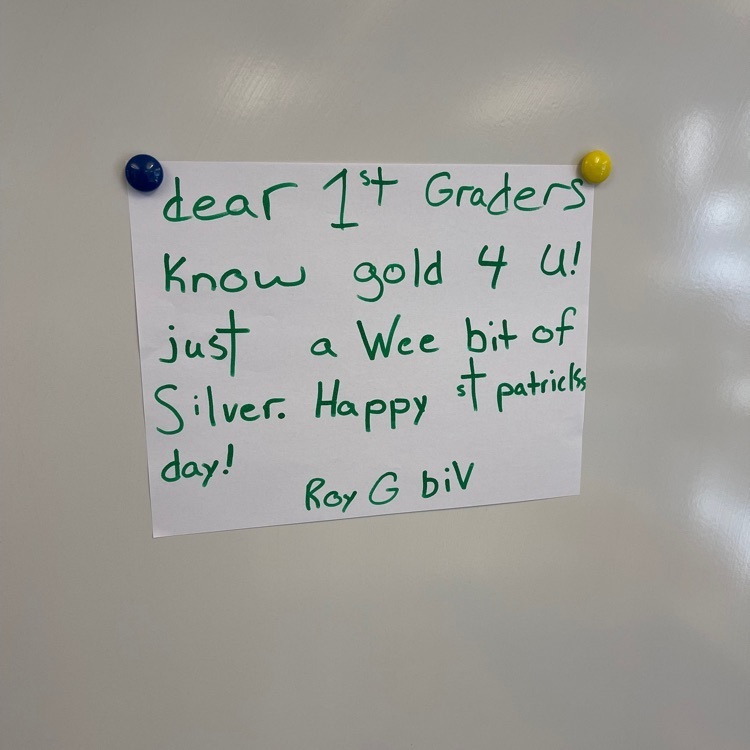 dear 1st Graders
Know gold 4 U!
just a Wee bit of
Silver. Happy st patricks
day!
Roy G biV